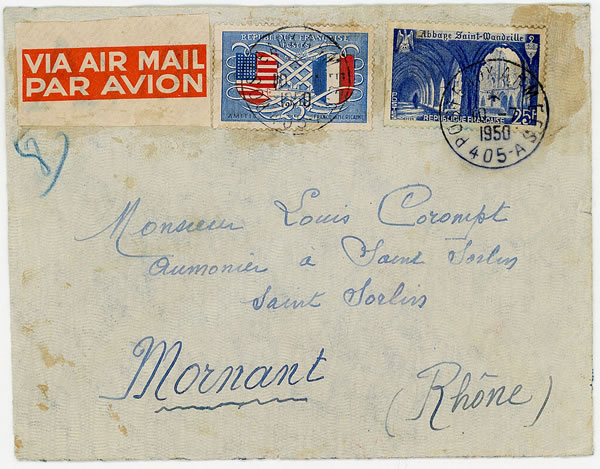 VIA AIR MAIL
PAR AVION
REPUBLIQUE FRANÇAISE
POSTES
AMITIE
25F
FRANCO-AMERICAINE
Abbaye Saint-Wandrille
REPUBLIQUE FRANÇAISE
25F
1950
405-A
8
Monsieur Louis Corompt
aumonier à Saint Sorlin
Saint Sorlin
Mornant
(Rhône)